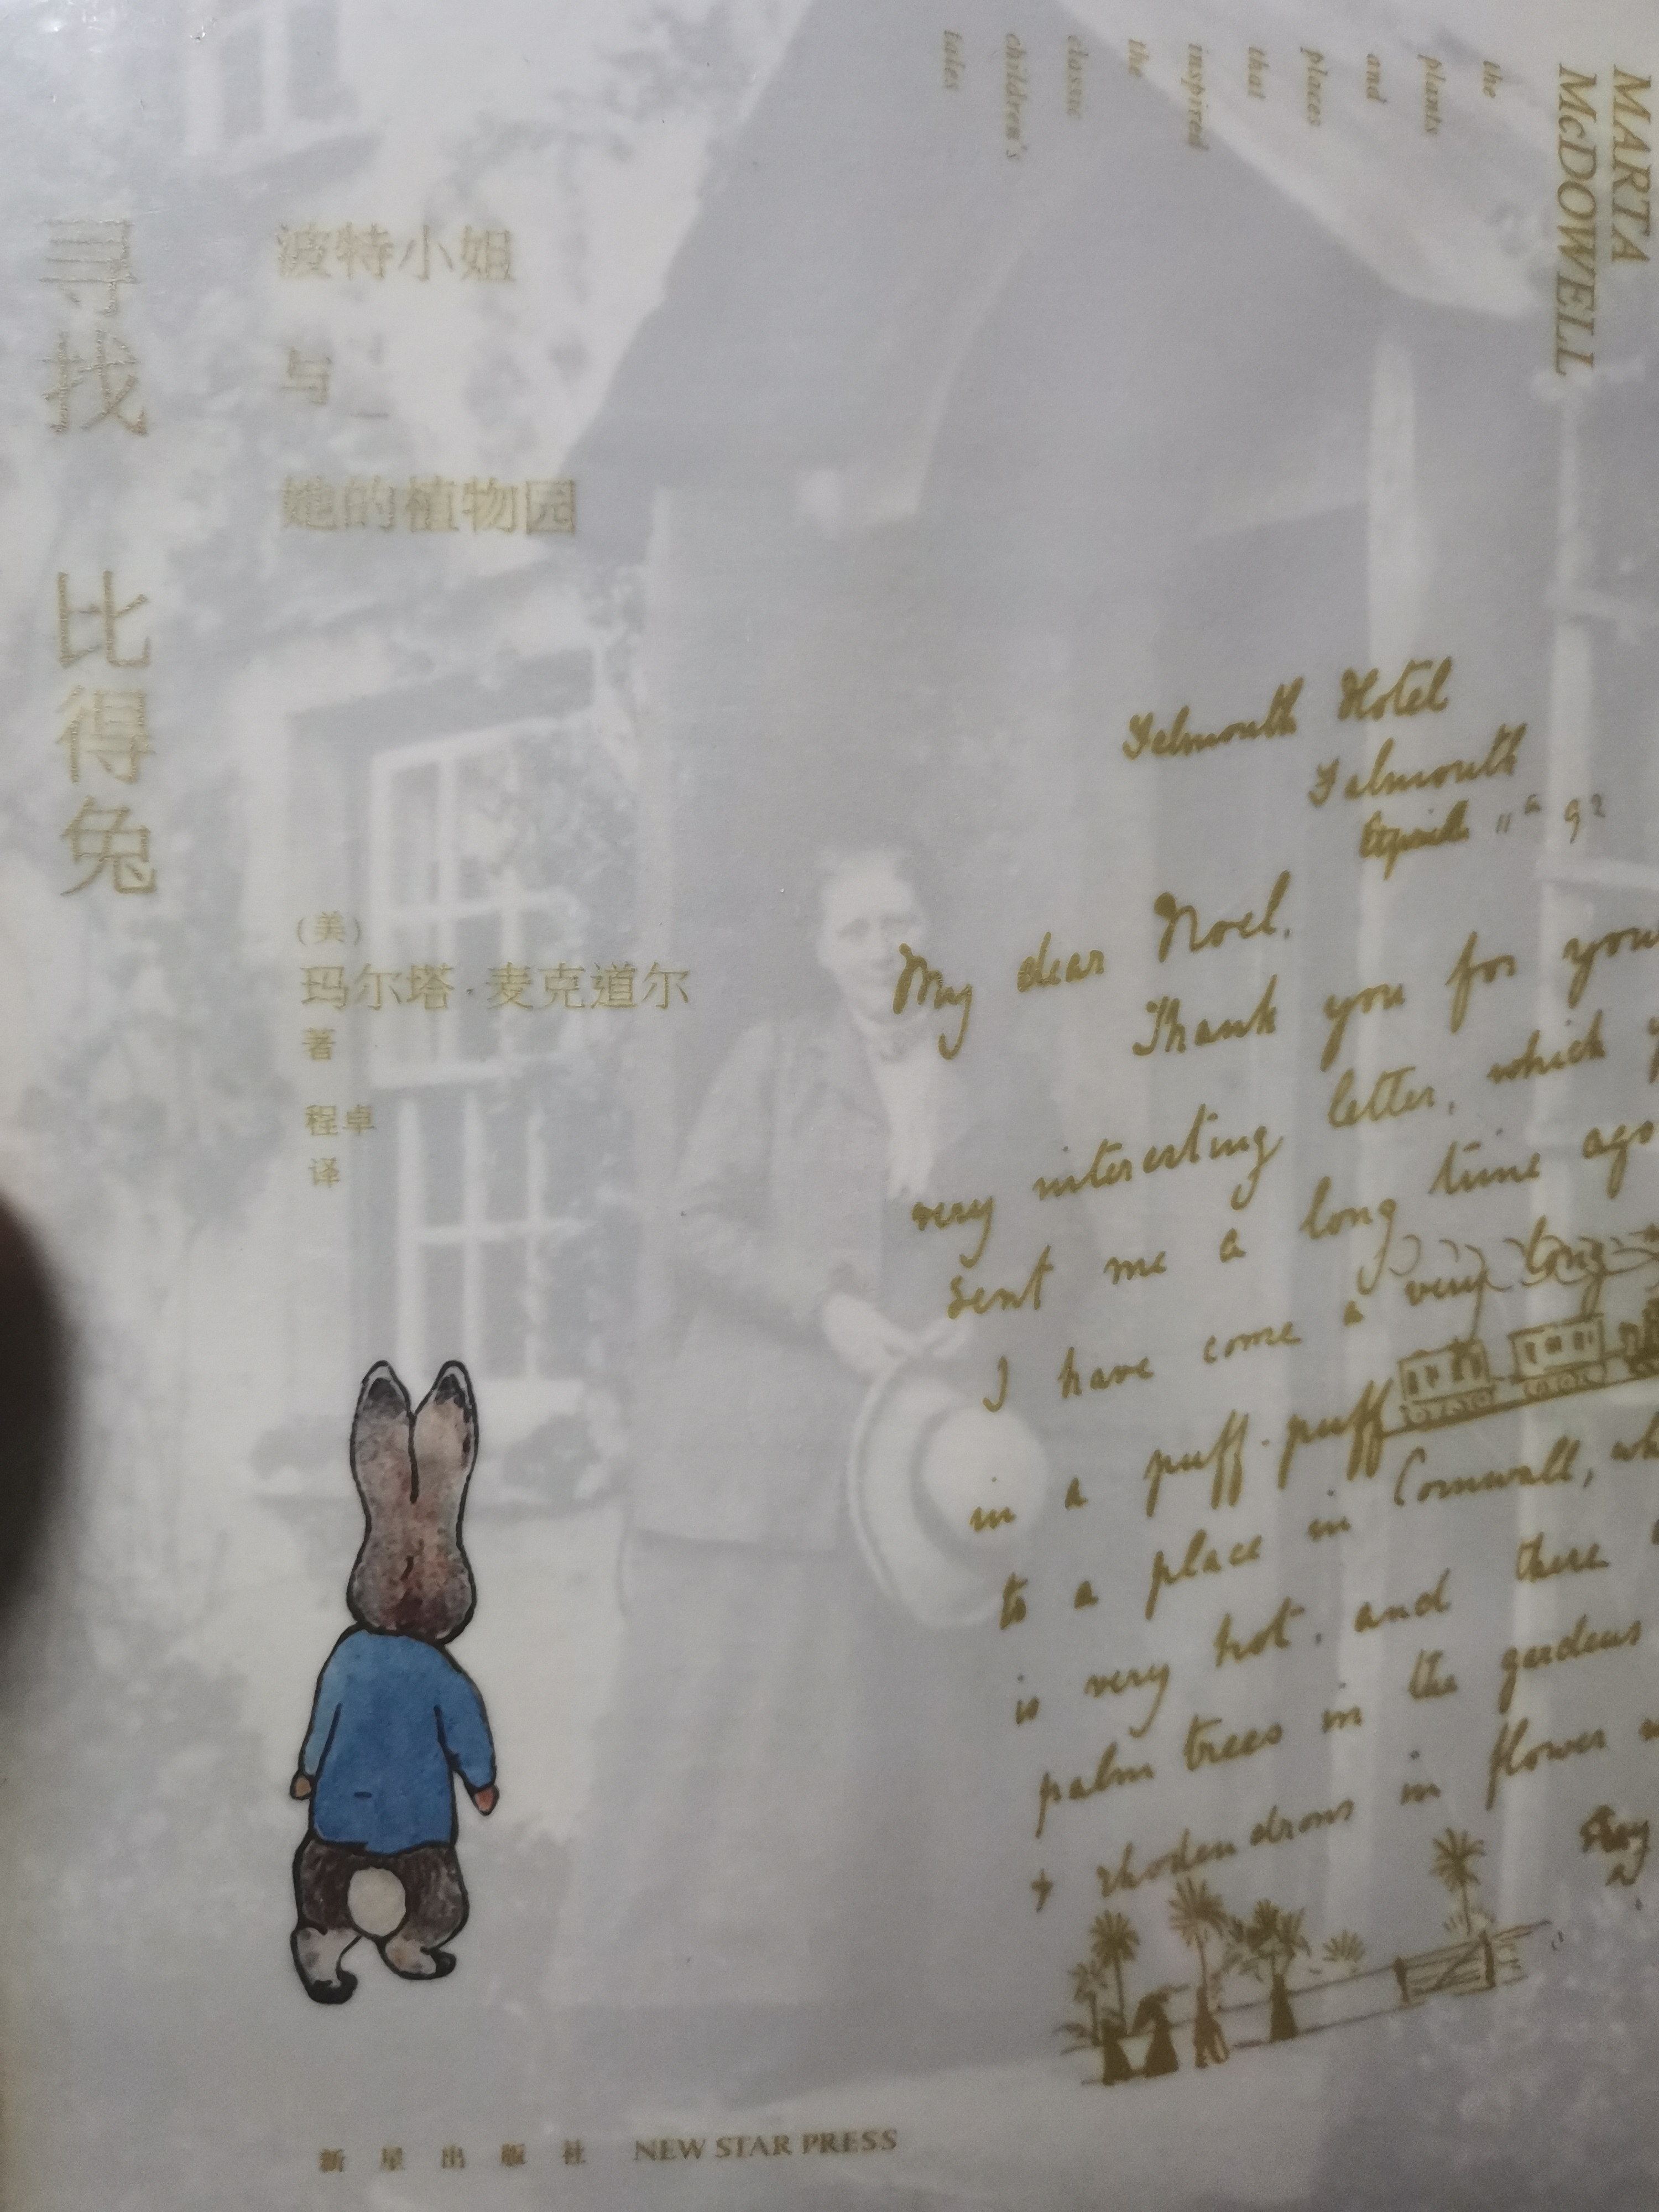 寻找 比得兔
波特小姐
与
她的植物园
(美)
玛尔塔·麦克道尔
著
程卓
译
MARTA
McDOWELL
the
plants
and
places
that
inspired
the
classic
children's
tales
Falmouth Hotel
Falmouth
11th 92
My dear Noel,
Thank you for your
very interesting letter, which
sent me a long time ago
I have come a very long
in a puff-puff
to a place in Cornwall,
is very hot, and there
palm trees in the gardens
+ rhodendrons in flower
新星出版社 NEW STAR PRESS